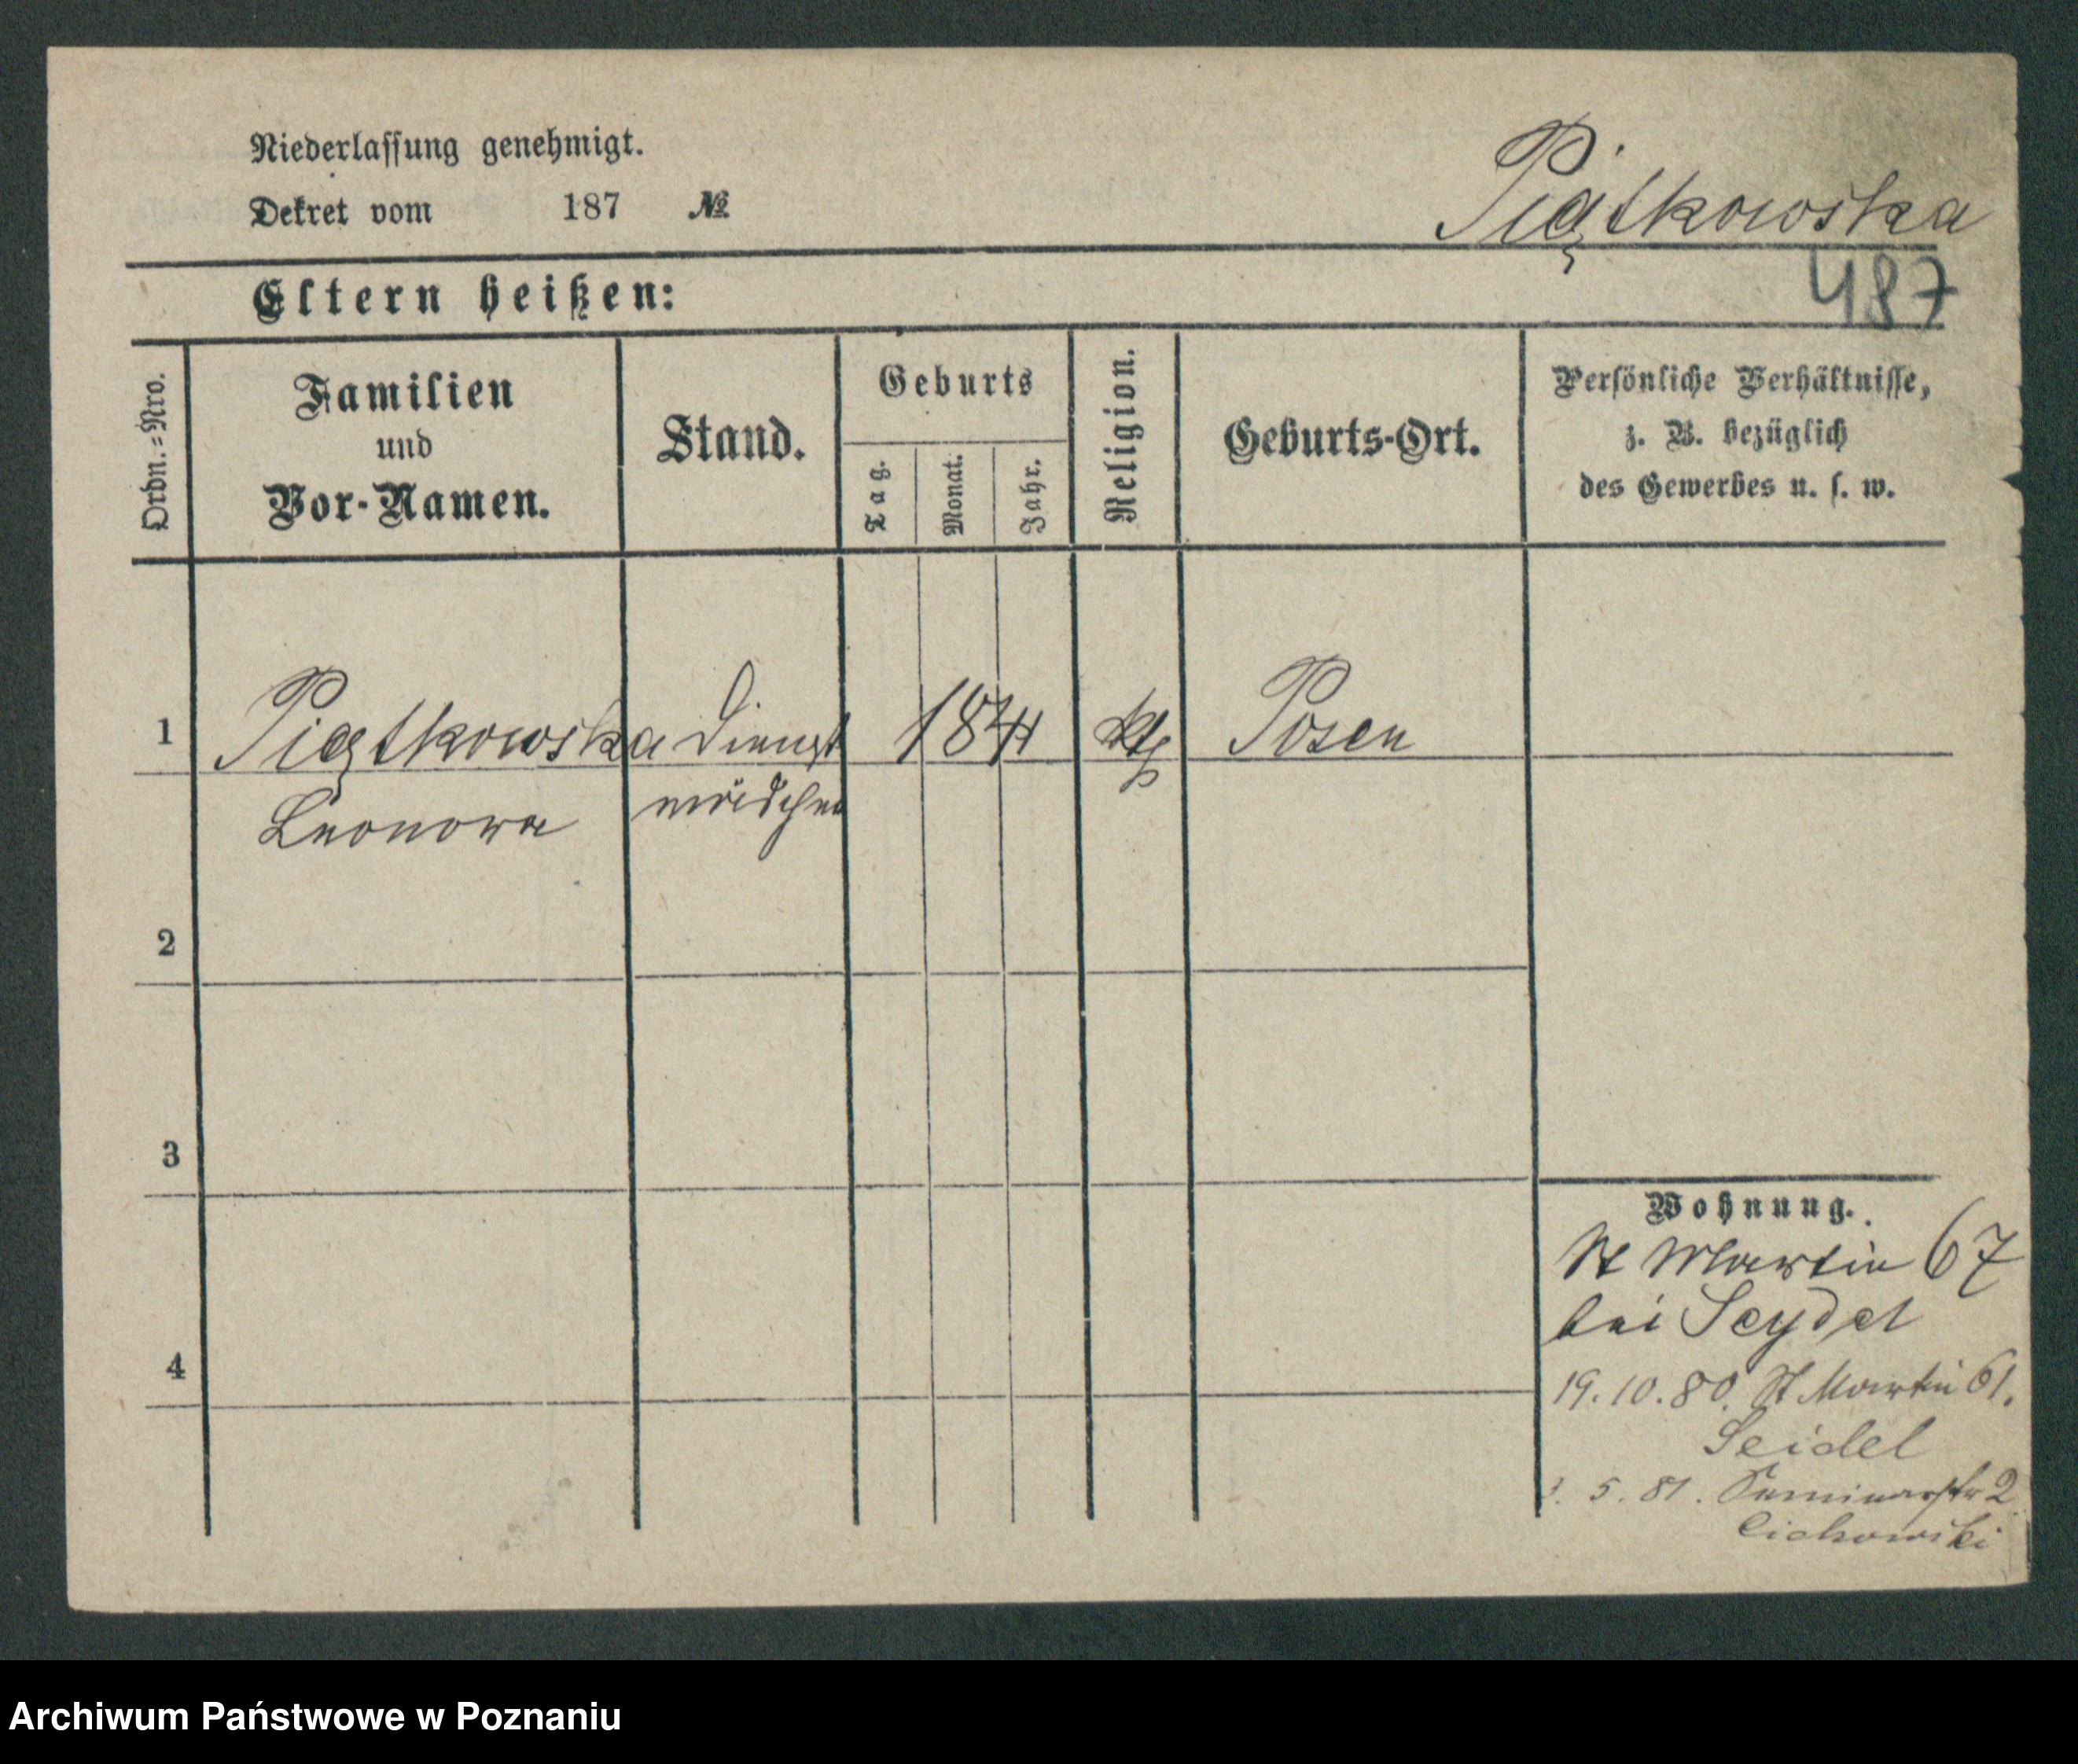 Niederlassung genehmigt.
Dekret vom 187 №
Piątkowska
487
Eltern heißen:
Ordn.=Nro.
Familien
und
Vor-Namen.
Stand.
Geburts
Tag.
Monat.
Jahr.
Religion.
Geburts-Ort.
Persönliche Verhältnisse,
z. B. bezüglich
des Gewerbes u. s. w.
1 Piątkowska Dienst 1844 kth Posen
Leonora mädchen
2
3
4
Wohnung.
St Martin 67
bei Seydel
19.10.80. St Martin 61.
Seidel
5. 81. Seminarstr 2
Cichowski
Archiwum Państwowe w Poznaniu